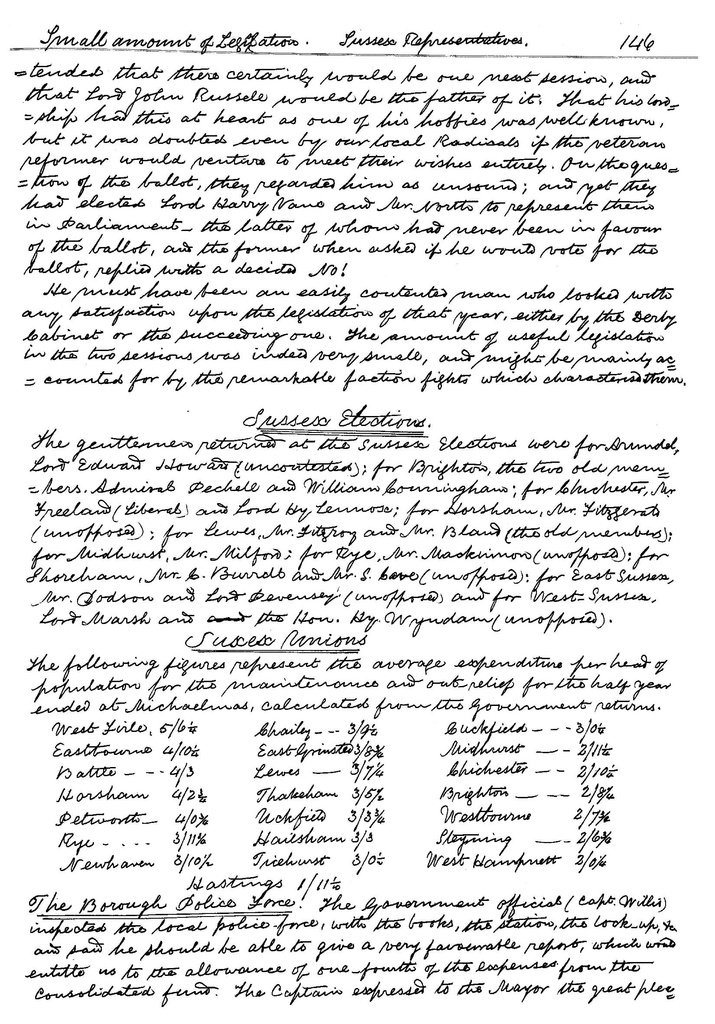 Small amount of Legislation. Sussex Representatives. 146
=tended that there certainly would be one next session, and
that Lord John Russell would be the father of it. That his lord=
=ship had this at heart as one of his hobbies was well known,
but it was doubted even by our local Radicals if the veteran
reformer would venture to meet their wishes entirely. On the ques=
=tion of the ballot, they regarded him as unsound; and yet they
had elected Lord Harry Vane and Mr. North to represent them
in Parliament – the latter of whom had never been in favour
of the ballot, and the former when asked if he would vote for the
ballot, replied with a decided No!
He must have been an easily contented man who looked with
any satisfaction upon the legislation of that year, either by the Derby
Cabinet or the succeeding one. The amount of useful legislation
in the two sessions was indeed very small, and might be mainly ac=
=counted for by the remarkable faction fights which characterised them.
Sussex Elections.
The gentlemen returned at the Sussex Elections were for Arundel,
Lord Edward Howard (uncontested); for Brighton, the two old mem=
=bers. Admiral Pechell and William Conningham; for Chichester, Mr
Freeland (Liberal) and Lord Hy Lennox; for Horsham, Mr. Fitzgerald
(unopposed); for Lewes, Mr. Fitzroy and Mr. Brand (the old members);
for Midhurst, Mr. Milford; for Rye, Mr. Mackinnon (unopposed); for
Shoreham, Mr. C. Burrell and Mr. S. Cave (unopposed); for East Sussex,
Mr. Dodson and Lord Pevensey (unopposed) and for West Sussex,
Lord March and the Hon. Hy. Wyndam (unopposed).
Sussex Unions
The following figures represent the average expenditure per head of
population for the maintenance and out-relief for the half year
ended at Michaelmas, calculated from the Government returns.
West Firle, 5/6½ Chailey -- 3/9½ Cuckfield --- 3/0½
Eastbourne 4/10½ East Grinsted 3/8¾ Midhurst -- 2/11½
Battle --- 4/3 Lewes — 3/7¼ Chichester -- 2/10½
Horsham 4/2½ Thakeham 3/5½ Brighton --- 2/8¼
Petworth – 4/0¾ Uckfield 3/3¾ Westbourne 2/7¾
Rye ---- 3/11¾ Hailsham 3/3 Steyning -- 2/6¾
Newhaven 3/10½ Ticehurst 3/0½ West Hampnett 2/0¼
Hastings 1/11½
The Borough Police Force! The Government official (Capt. Willis)
inspected the local police-force, with the books, the station, the lock-up, &c
and said he should be able to give a very favourable report, which would
entitle us to the allowance of one-fourth of the expenses from the
Consolidated fund. The Captain expressed to the Mayor the great plea=